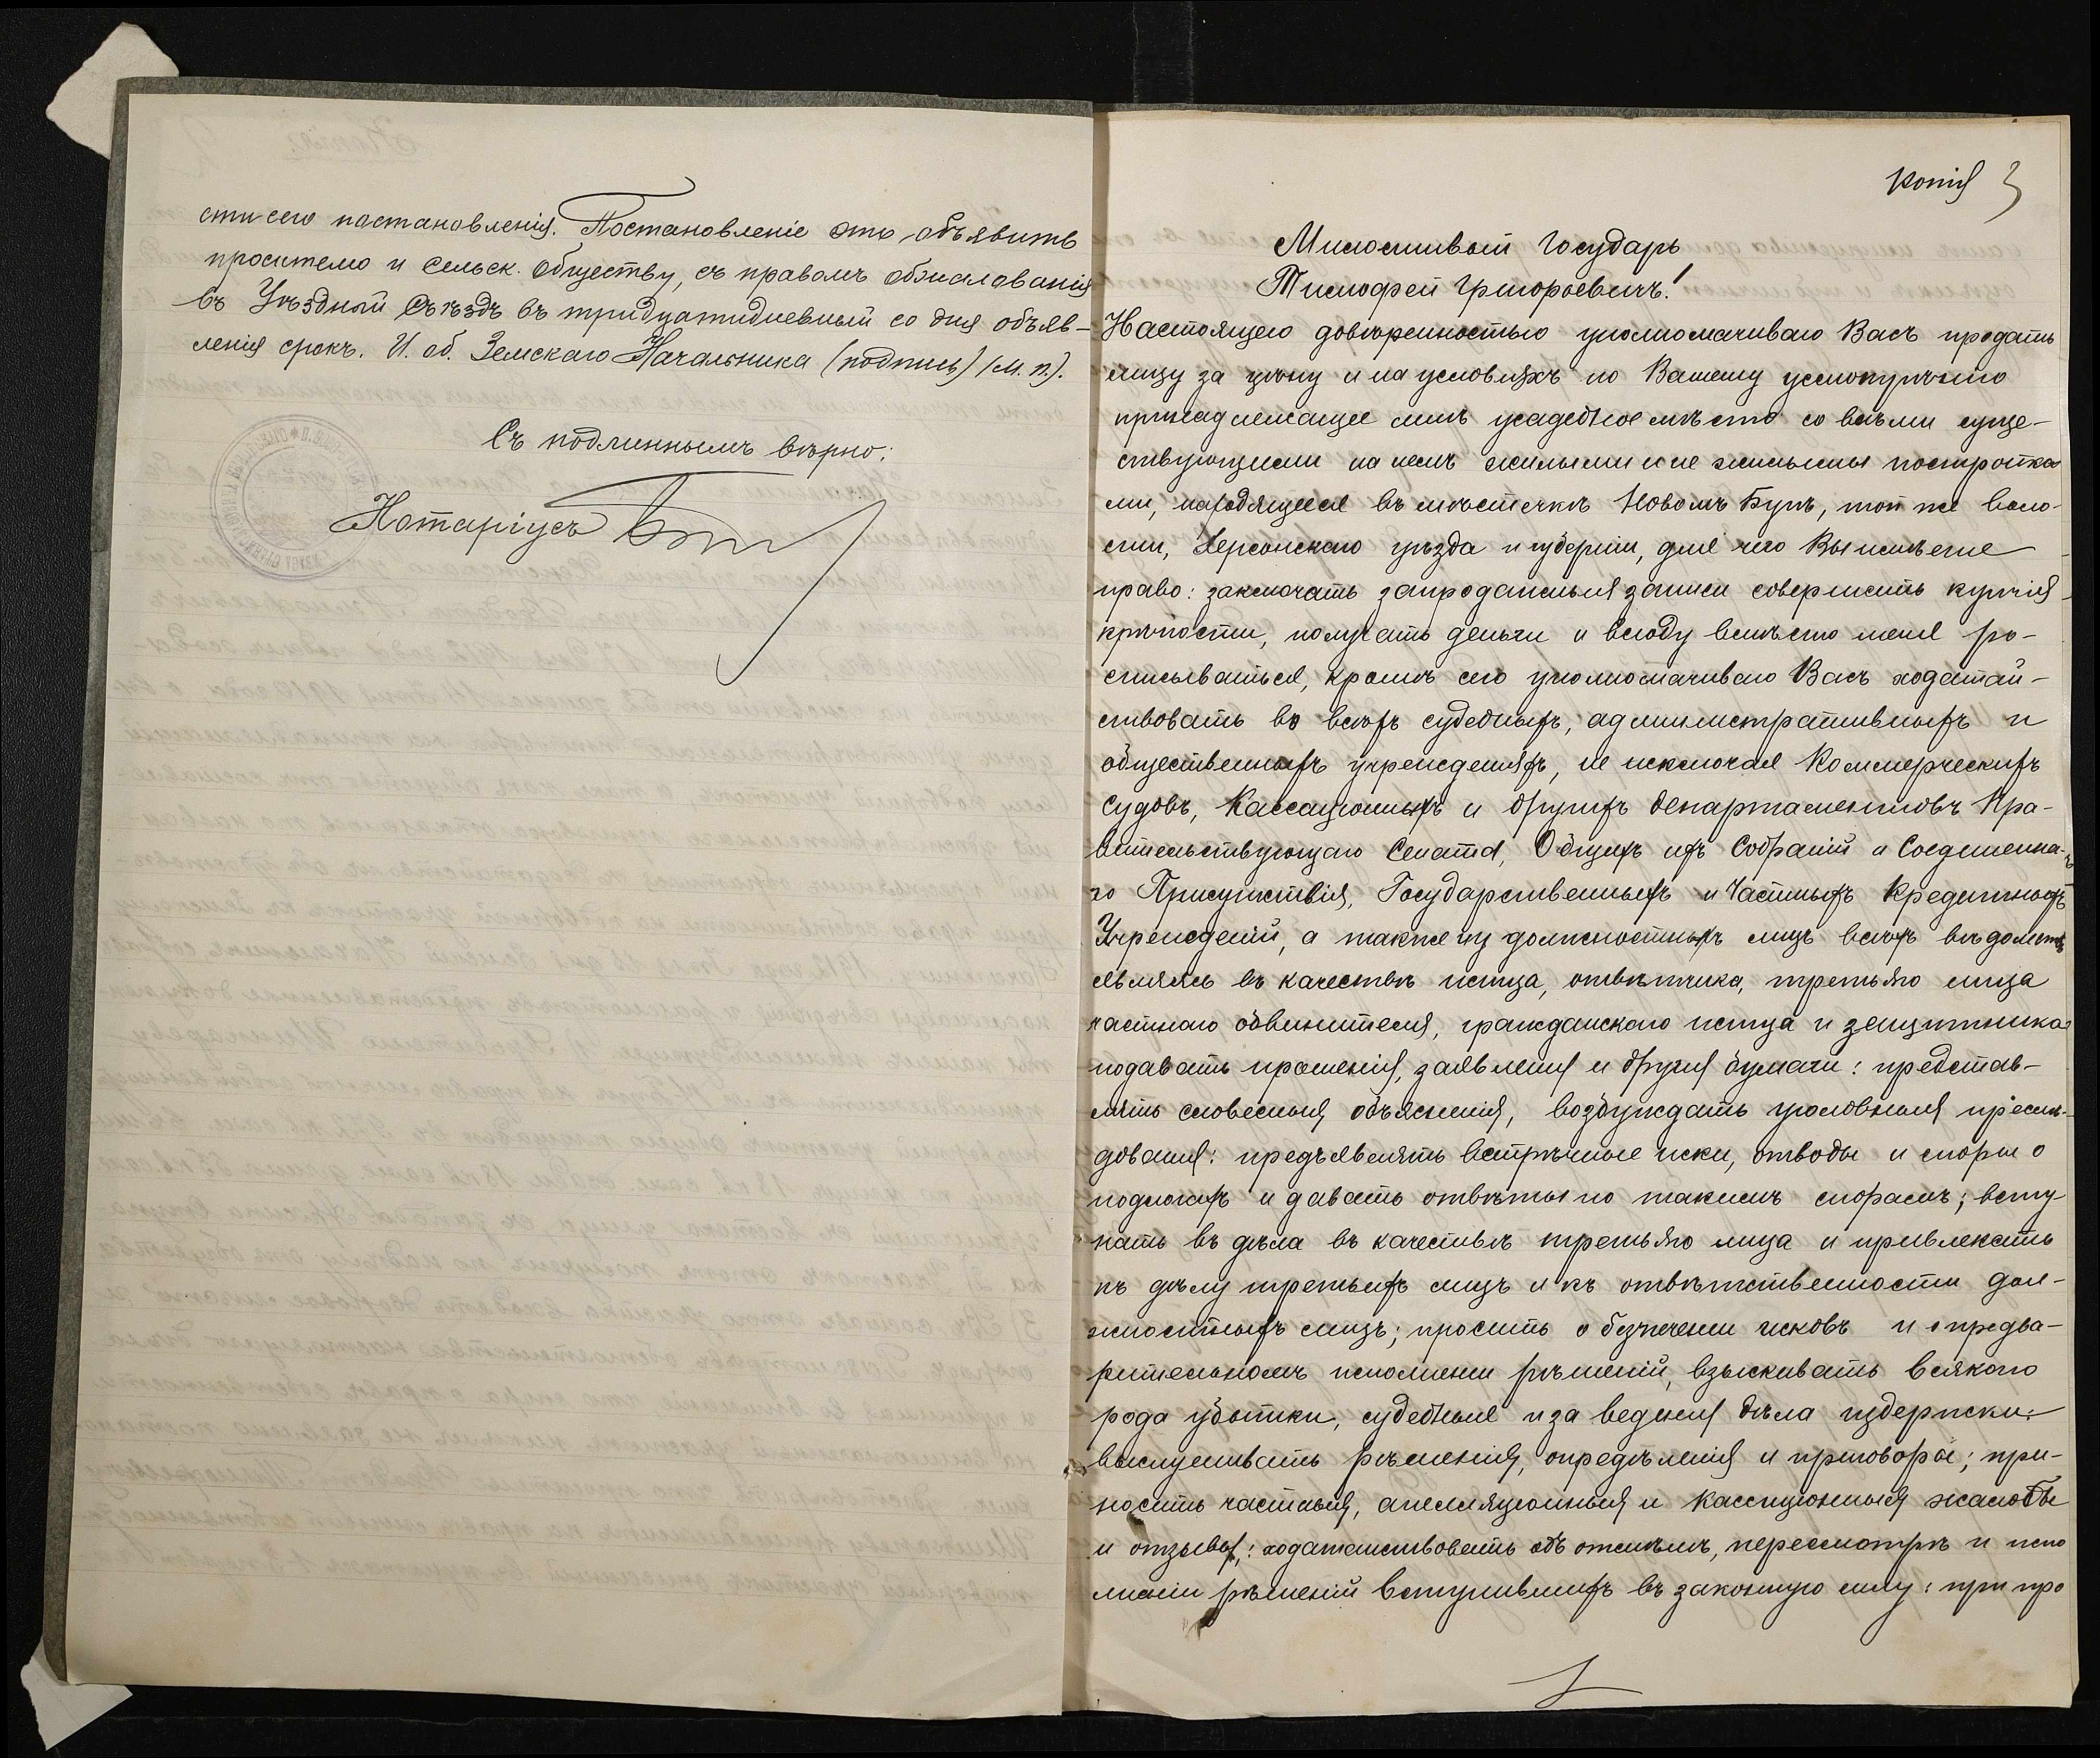 сти сего постановленія. Постановленіе это объявить
просителю и сельск. обществу, съ правомъ обжалованія
въ Уѣздный Съѣздъ въ тридцатидневный со дня объяв-
ленія срокъ. И. об. Земскаго Начальника (подпись) (М. п.).
Съ подлиннымъ вѣрно:
Нотаріусъ
копія 3
Милостивый Государь
Тимофей Григорьевичъ!
Настоящею довѣренностью уполномачиваю Васъ продать
лицу за цѣну и на условіяхъ по Вашему усмотрѣнію
принадлежащее мнѣ усадебное мѣсто со всѣми суще-
ствующими на немъ жилыми и не жилыми постройка
ми, находящееся въ мѣстечкѣ Новомъ Бугѣ, той же воло-
сти, Херсонскаго уѣзда и губерніи, для чего Вы имѣете
право: заключать запродажныя записи совершить купчія
крѣпости, получать деньги и всюду вмѣсто меня ро-
списываться, кромѣ сего уполномачиваю Васъ ходатай-
ствовать во всѣхъ судебныхъ, административныхъ и
общественныхъ учрежденіяхъ, не исключая Коммерческихъ
Судовъ, Кассаціонныхъ и другихъ департаментовъ Пра-
вительствующаго Сената, Общихъ ихъ Собраній и Соединенна-
го Присутствія, Государственныхъ и Частныхъ Кредитныхъ
Учрежденій, а также у должностныхъ лицъ всѣхъ вѣдомствъ
являясь въ качествѣ истца, отвѣтчика, третьяго лица
частнаго обвинителя, гражданскаго истца и защитника
подавать прошенія, заявленія и другія бумаги: представ-
лять словесныя объясненія, возбуждать уголовныя преслѣ-
дованія: предъявлять встрѣчные иски, отводы и споры о
подлогахъ и давать отвѣты по такимъ спорамъ; всту-
пать въ дѣла въ качествѣ третьяго лица и привлекать
къ дѣлу третьихъ лицъ и къ отвѣтственности дол-
жностныхъ лицъ; просить о безпеченіи исковъ и о предва-
рительномъ исполненіи рѣшеній, взыскивать всякаго
рода убытки, судебныя и за веденія дѣла издержки:
выслушивать рѣшенія, опредѣленія и приговоры; при-
носить частныя, апелляціонныя и кассаціонныя жалобы
и отзывы; ходатайствовать объ отмѣнѣ, пересмотрѣ и испо
лненіи рѣшеній вступившихъ въ законную силу: при про